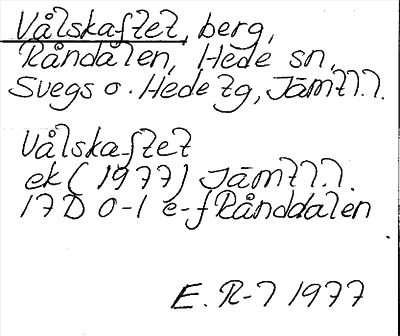 Vålskaftet, berg,
Råndalen, Hede sn,
Svegs o. Hede tg, Jämtl.l.
Vålskaftet
ek (1977) Jämtl.l.
17D 0-1 e-f Rånddalen
E. R-7 1977